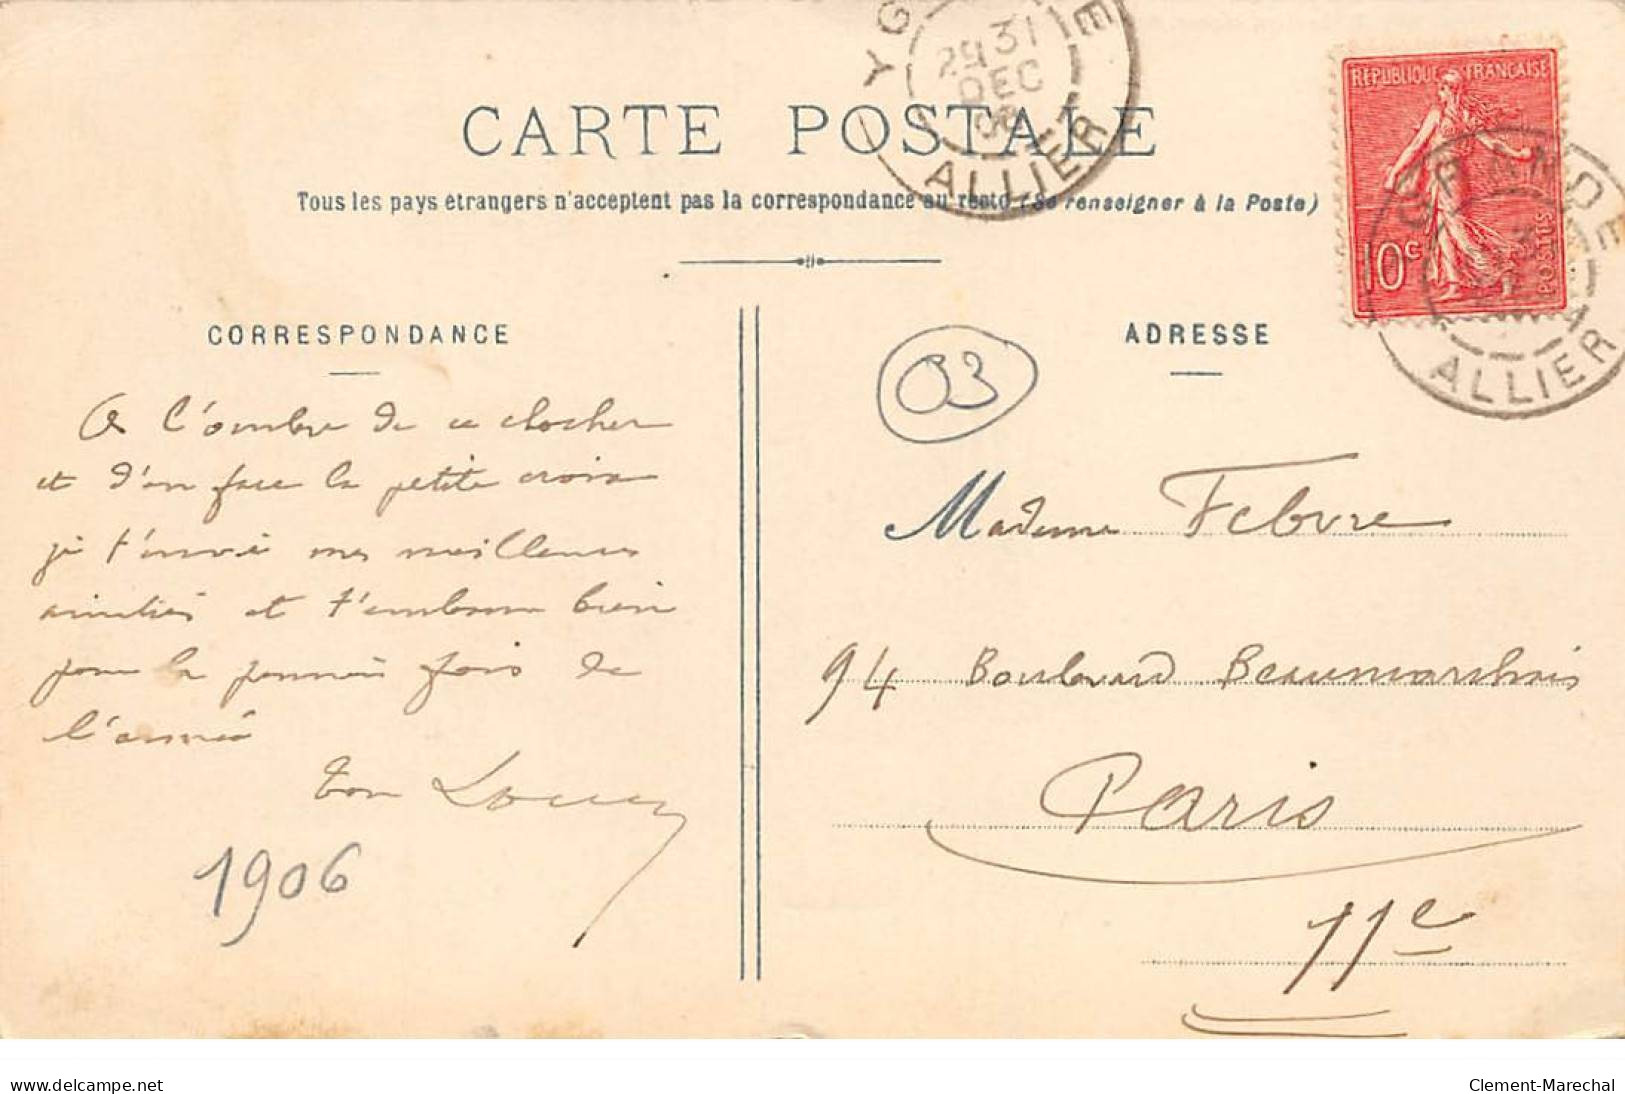 YG
E
29 31
DEC
06
ALLIER
CARTE POSTALE
Tous les pays étrangers n'acceptent pas la correspondance au recto (Se renseigner à la Poste)
RÉPUBLIQUE FRANÇAISE
10c
POSTES
GRANDE
ALLIER
CORRESPONDANCE
A l'ombre de ce clocher
et d'en face la petite croix
je t'envoie mes meilleures
amitiés et t'embrasse bien
pour la première fois de
l'année
ton
1906
ADRESSE
03
Madame Febvre
94 Boulevard Beaumarchais
Paris
11e
delcampe.net
Clement-Marechal